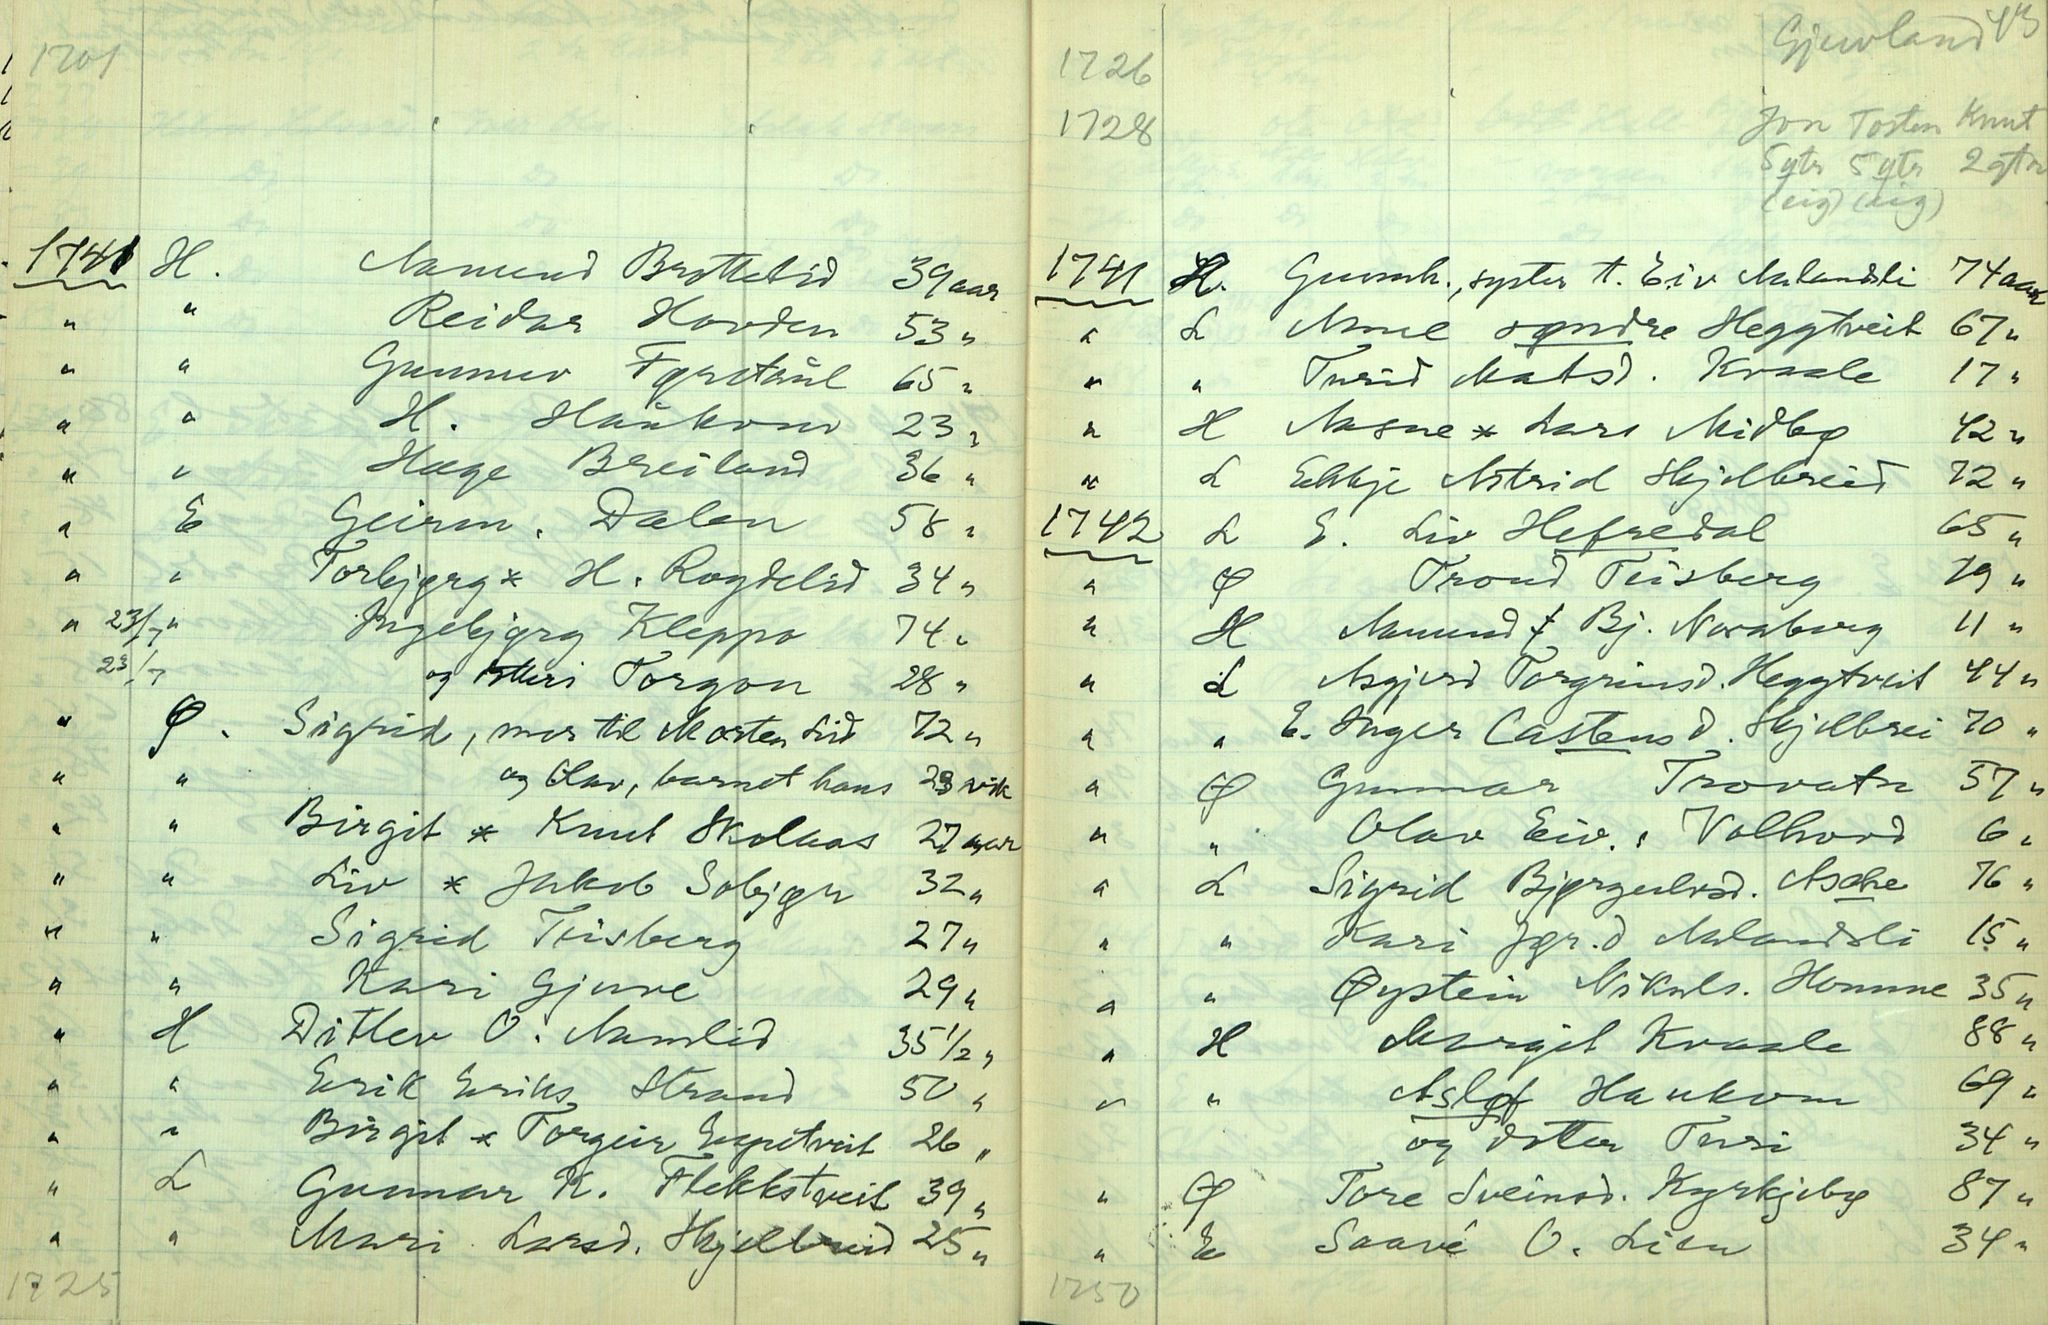 1701
1741 H. Aamund Brottelid 39 aar
" " Reidar Hovden 53 "
" " Gunnuv Førstøul 65 "
" " H. Haukom 23 "
" " Hæge Breiland 36 "
" E Geirm. Dalen 58 "
" " Torbjørg * H. Røydelid 34 "
" 23/7 " Ingebjørg Kleppo 74 "
23/7 og Torgon 28 "
" Ø. Sigrid, mor til Morten Lid 72 "
" " og Olav, barnet hans 23 vik
" " Birgit * Knut Skolaas 27 aar
" " Liv * Jakob Sobjøn 32 "
" " Sigrid Teisberg 27 "
" " Kari Gjuve 29 "
" H Ditlev O. Aamlid 35 1/2 "
" " Eirik Eiriks. Strand 50 "
" " Birgit * Torgeir 26 "
" L Gunnar K. Flekkstveit 39 "
" " Mari Larsd. Skjelbreid 25 "
1725
Gjuvland 43
1726
1728
Jon Tosten Knut
5 ytr 5 ytr 2
(eig) (eig)
1741 H. Gunnh., syster t. Eiv Aalandsli 74 aar
" L Anne søndre Heggtveit 67 "
" " Turid Matsd. Kraale 17 "
" H Aasne * Lars Midbø 42 "
" L Ekkje Astrid Skjelbreid 72 "
1742 L E. Liv Hefredal 65 "
" Ø Trond Teisberg 79 "
" H Aamund Bj. Noraberg 11 "
" L Asgjerd Torgrimsd. Heggtveit 44 "
" " E. Inger Castensd. Skjelbrei 70 "
" Ø Gunnar Trovatn 57 "
" " Olav Eiv. Vallvord 6 "
" L Sigrid Bjørgulvsd. Aske 76 "
" " Kari Jør.d Aalandsli 15 "
" " Øystein Nikuls. Homme 35 "
" H Margit Kraale 88 "
" " Asløf Haukom 69 "
og dotter Turi 34 "
" Ø Tore Sveinsd. Kyrkjebø 87 "
" E Saave O. Lien 34 "
1750